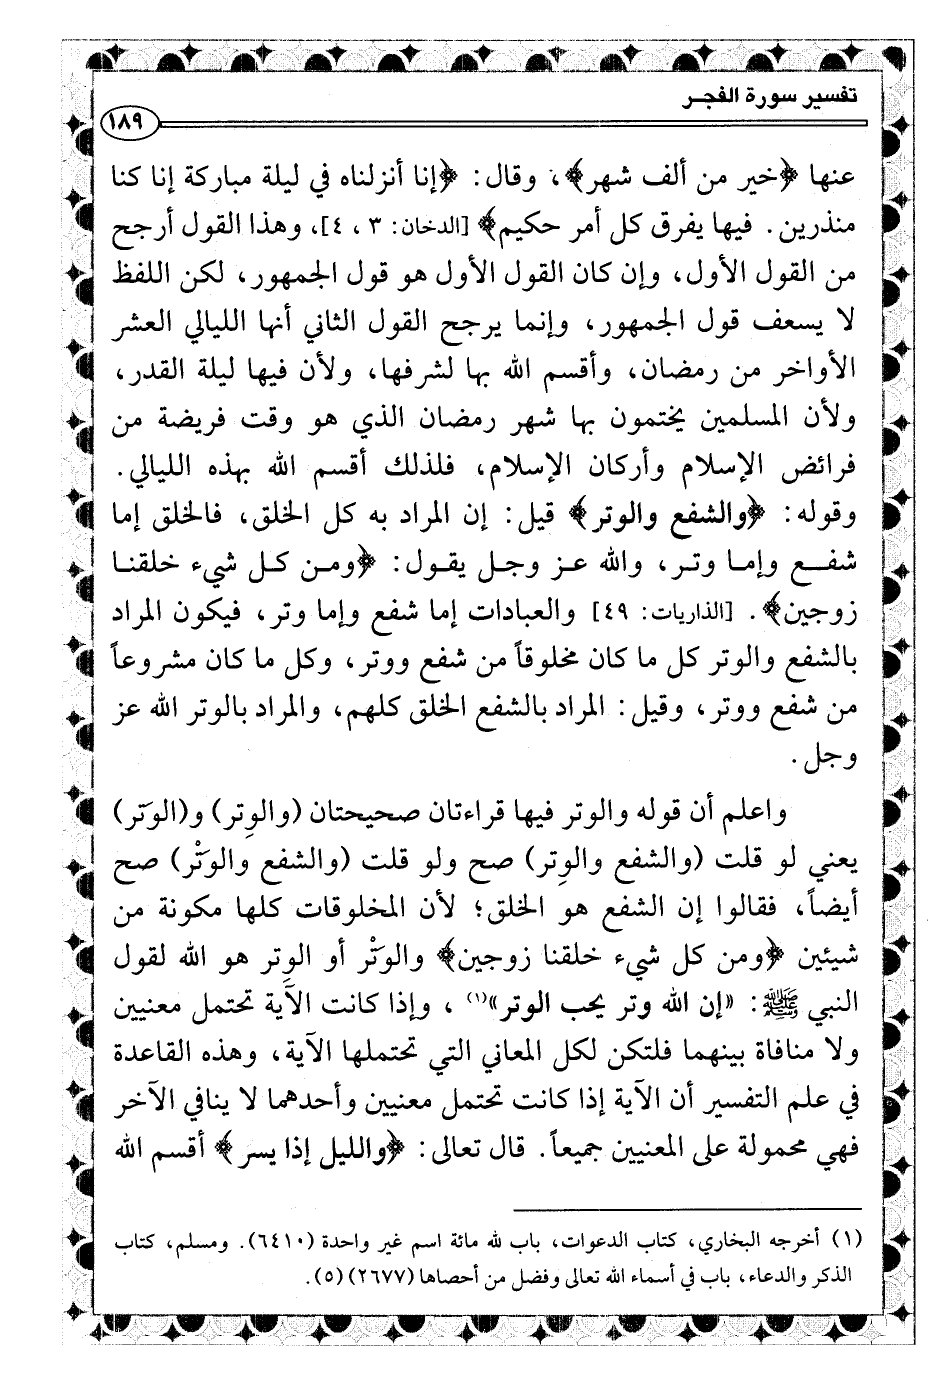 تفسير سورة الفجـر
١٨٩
عنها ﴿خير من ألف شهر﴾، وقال: ﴿إنا أنزلناه في ليلة مباركة إنا كنا
منذرين. فيها يفرق كل أمر حكيم﴾ [الدخان: ٣ ، ٤]، وهذا القول أرجح
من القول الأول، وإن كان القول الأول هو قول الجمهور، لكن اللفظ
لا يسعف قول الجمهور، وإنما يرجح القول الثاني أنها الليالي العشر
الأواخر من رمضان، وأقسم الله بها لشرفها، ولأن فيها ليلة القدر،
ولأن المسلمين يختمون بها شهر رمضان الذي هو وقت فريضة من
فرائض الإسلام وأركان الإسلام، فلذلك أقسم الله بهذه الليالي.
وقوله: ﴿والشفع والوتر﴾ قيل: إن المراد به كل الخلق، فالخلق إما
شفـع وإمـا وتـر، والله عـز وجـل يقـول: ﴿ومـن كـل شيء خلقنـا
زوجين﴾. [الذاريات: ٤٩] والعبادات إما شفع وإما وتر، فيكون المراد
بالشفع والوتر كل ما كان مخلوقاً من شفع ووتر، وكل ما كان مشروعاً
من شفع ووتر، وقيل: المراد بالشفع الخلق كلهم، والمراد بالوتر الله عز
وجل.
واعلم أن قوله والوتر فيها قراءتان صحيحتان (والوِتر) و(الوَتر)
يعني لو قلت (والشفع والوِتر) صح ولو قلت (والشفع والوَتْر) صح
أيضاً، فقالوا إن الشفع هو الخلق؛ لأن المخلوقات كلها مكونة من
شيئين ﴿ومن كل شيء خلقنا زوجين﴾ والوَتْر أو الوِتر هو الله لقول
النبي ﷺ: «إن الله وتر يحب الوتر»(١) ، وإذا كانت الآية تحتمل معنيين
ولا منافاة بينهما فلتكن لكل المعاني التي تحتملها الآية، وهذه القاعدة
في علم التفسير أن الآية إذا كانت تحتمل معنيين وأحدهما لا ينافي الآخر
فهي محمولة على المعنيين جميعاً. قال تعالى: ﴿والليل إذا يسر﴾ أقسم الله
(١) أخرجه البخاري، كتاب الدعوات، باب لله مائة اسم غير واحدة (٦٤١٠). ومسلم، كتاب
الذكر والدعاء، باب في أسماء الله تعالى وفضل من أحصاها (٢٦٧٧) (٥).